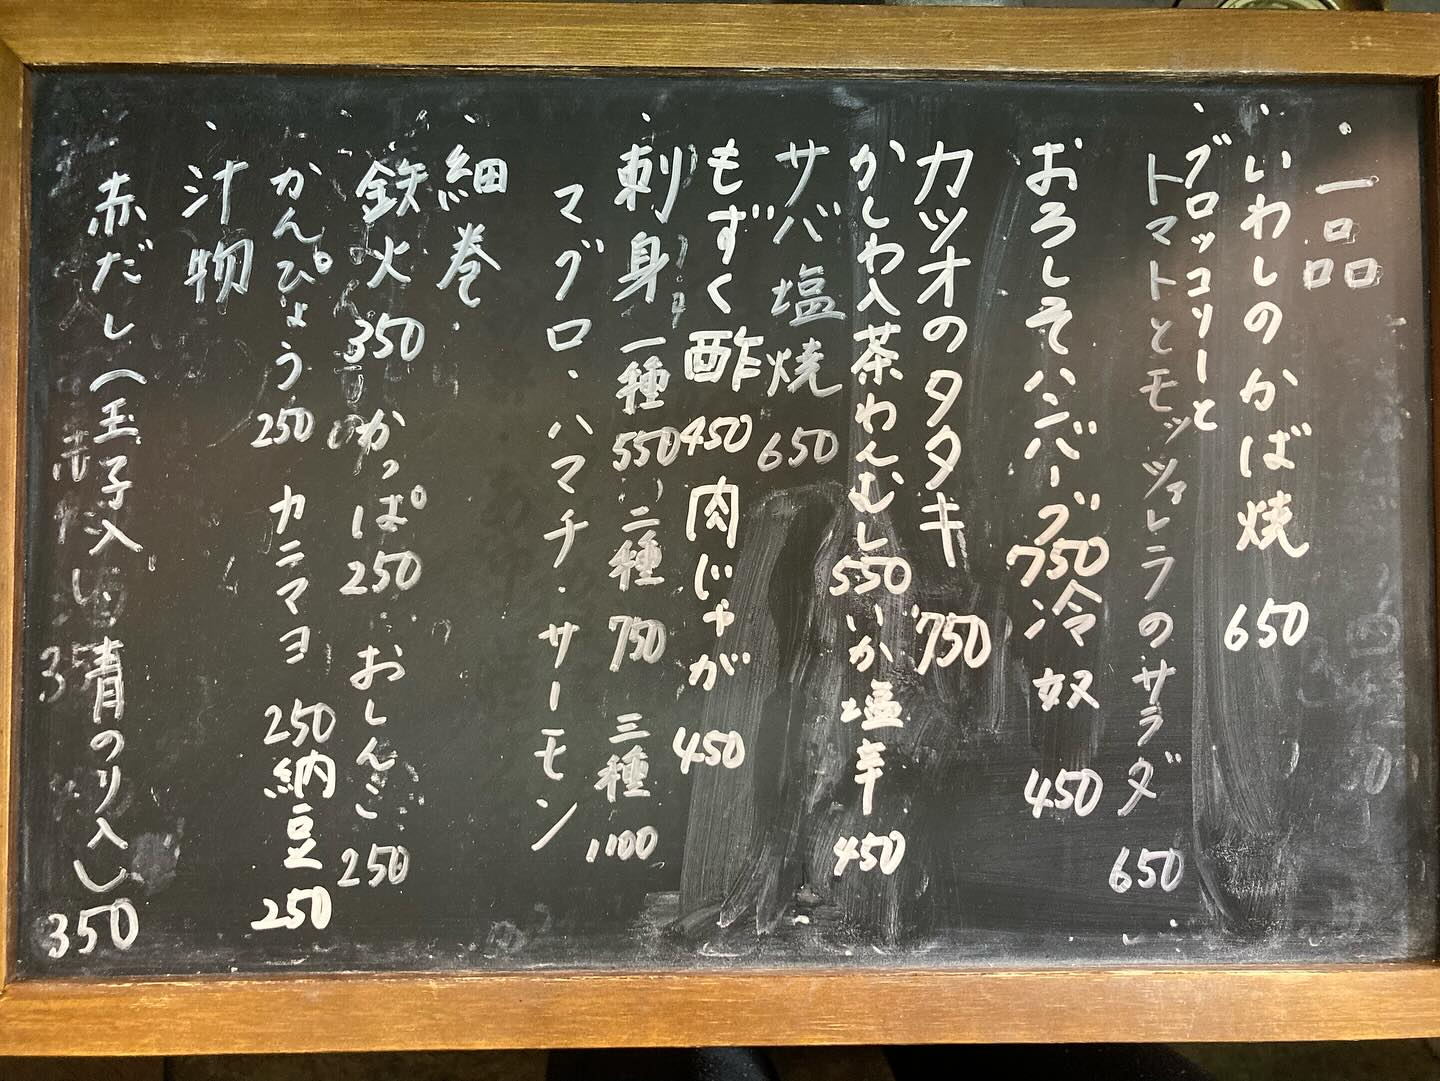 一品
いわしのかば焼 650
ブロッコリーと
トマトとモッツァレラのサラダ 650
おろしそハンバーグ750 冷奴 450
カツオのタタキ 750
かしわ入茶わんむし550 いか塩辛 450
サバ塩焼 650
もずく酢 450 肉じゃが 450
刺身 一種 550 二種 750 三種 1,100
マグロ・ハマチ・サーモン
細巻
鉄火 350 かっぱ 250 おしんこ 250
かんぴょう 250 カニマヨ 250 納豆 250
汁物
赤だし(玉子入り、青のり入り 350